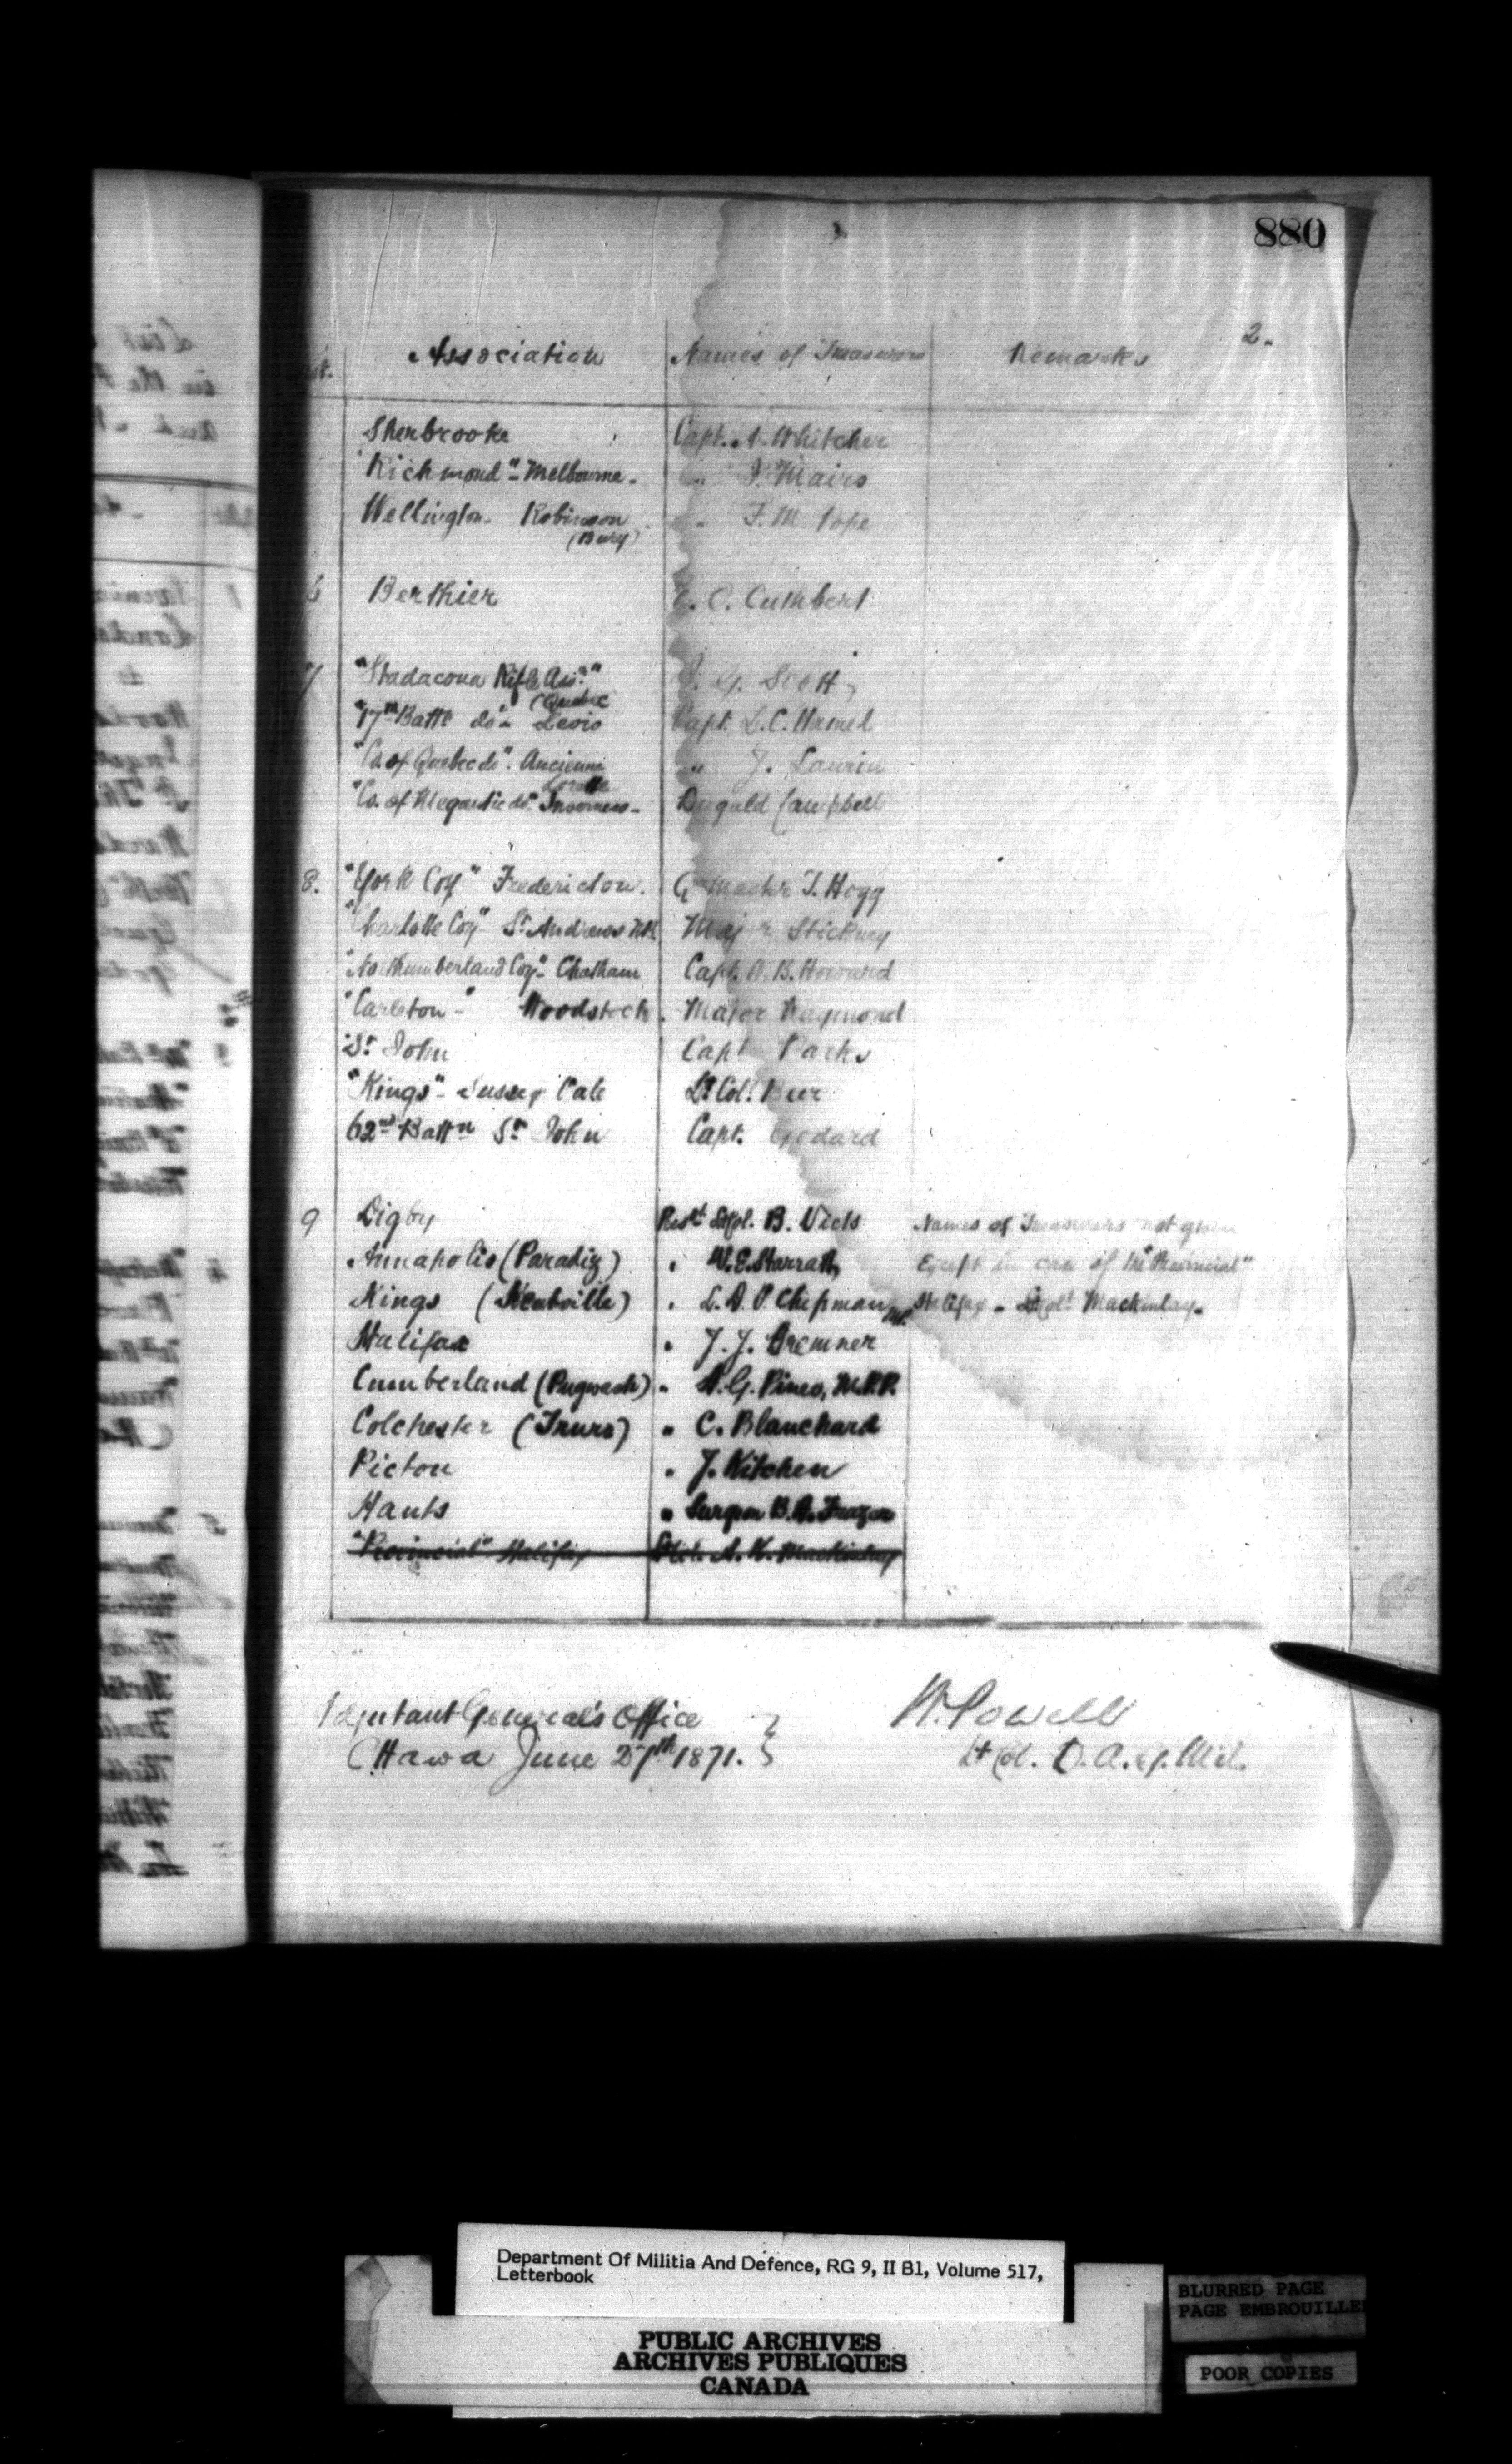 880
2.
Association Names of Treasurers Remarks
Sherbrooke Capt. A. Whitcher
"Richmond" - Melbourne - " J. Mairs
Wellington - Robinson " F. M. Pope
(Bury)
6 Berthier E. O. Cuthbert
7 "Stadacona Rifle Assn." J. G. Scott
(Quebec
"17th Battn do" - Levis Capt. L. C. Hamel
"Co. of Quebec do". Ancienne " J. Laurin
Lorette
"Co. of Megantic do" Inverness - Dugald Campbell
8. "York Coy" Fredericton. Qr Master T. Hogg
"Charlotte Coy" St Andrews N.B. Major Stickney
"Northumberland Coy" - Chatham Capt. A. B. Howard
"Carleton - " Woodstock. Major Raymond
St John Capt Parks
"Kings" - Sussex Vale Lt Col. Beer
62nd Battn St John Capt. Godard
9 Digby Presdt Lt Col. B. Viets Names of Treasurers not given
Annapolis (Paradiz) " W. E. Starratt Except in case of the "Provincial"
Kings (Kentville) " L. D. V. Chipman Halifax - Lt Col. Mackinlay -
Halifax " J. J. Bremner
Cumberland (Pugwash) " H. G. Pineo, M.P.P.
Colchester (Truro) " C. Blanchard
Pictou " J. Kitchen
Hants " Surgeon B. A. Frazer
"Provincial" Halifax Lt Col. A. K. Mackinlay
Adjutant General's Office
Ottawa June 27th 1871.
W. Powell
Lt Col. D. A. G. Mil.
Department Of Militia And Defence, RG 9, II B1, Volume 517,
Letterbook
PUBLIC ARCHIVES
ARCHIVES PUBLIQUES
CANADA
BLURRED PAGE
PAGE EMBROUILLEE
POOR COPIES